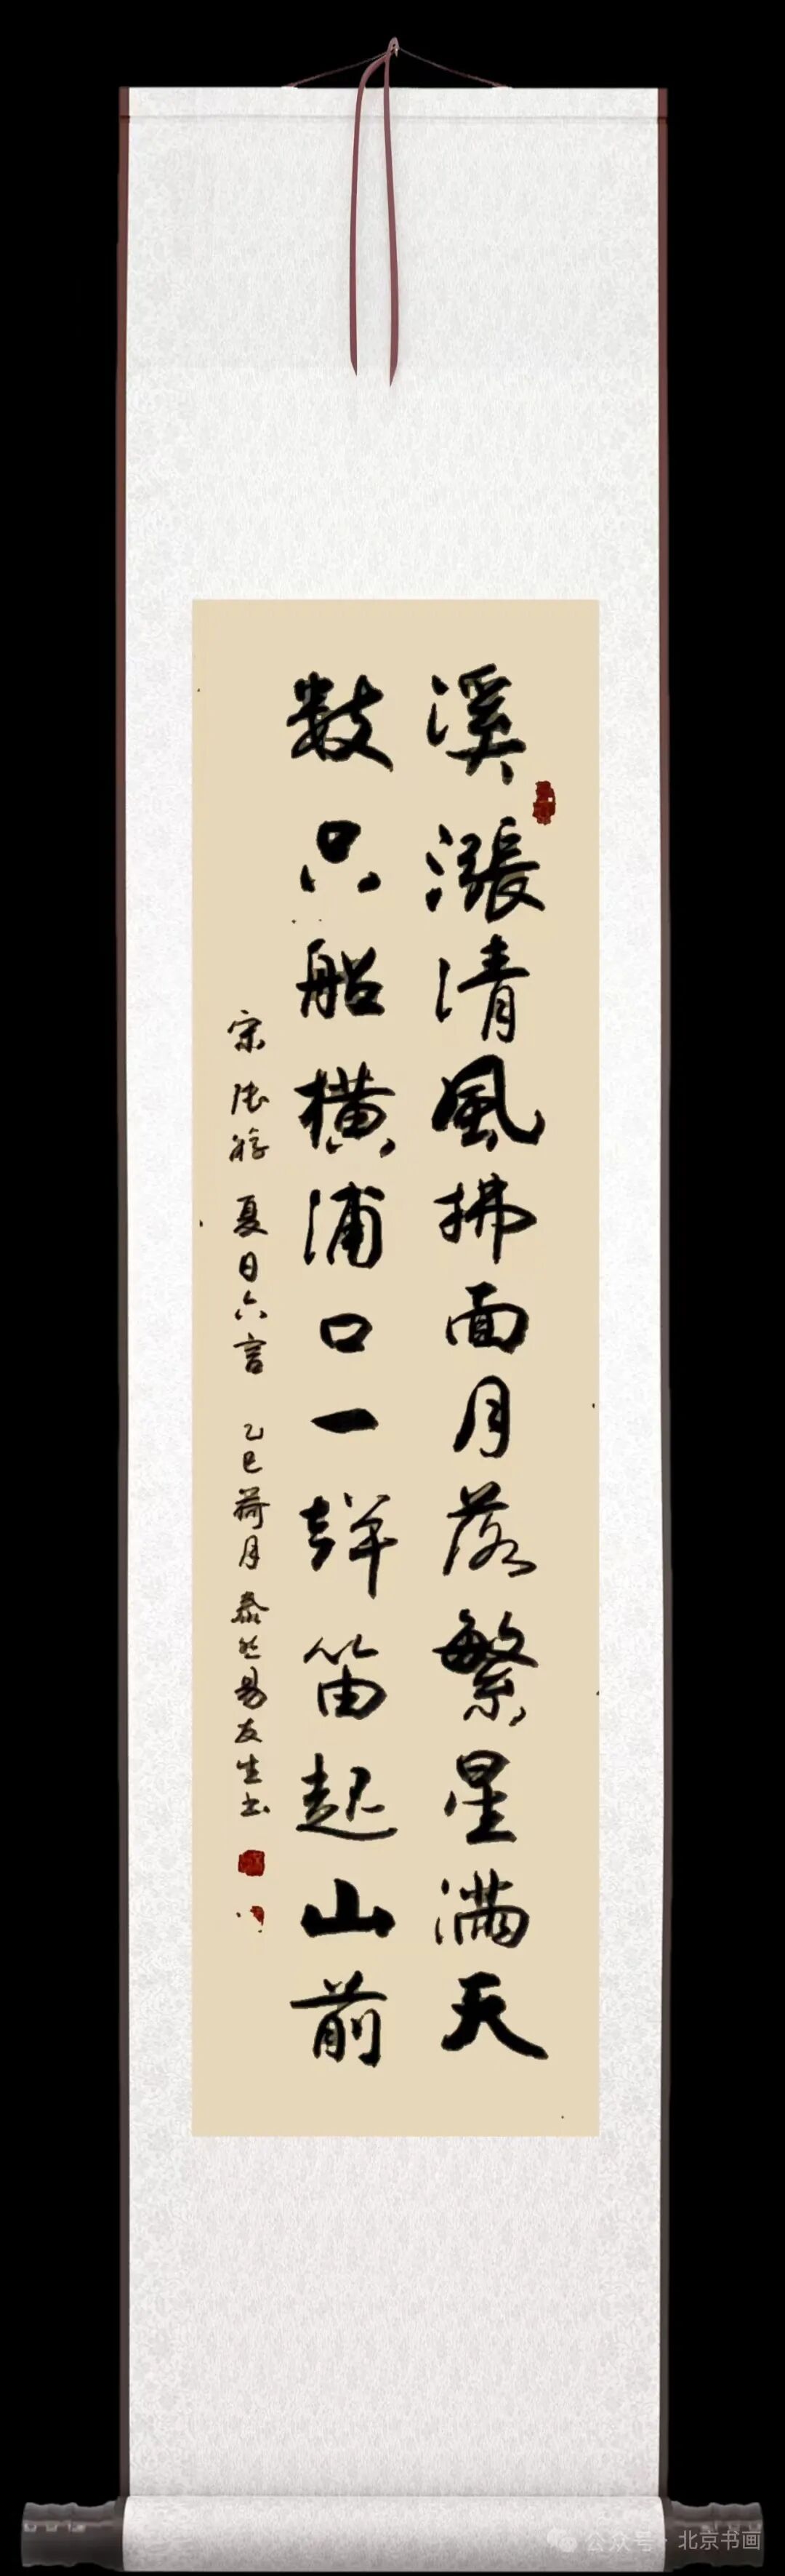 溪漲清風拂面月落繁星滿天
数只船横浦口一聲笛起山前
宋陸游 夏日六言 乙巳荷月 泰然易友生书
公众号·北京书画